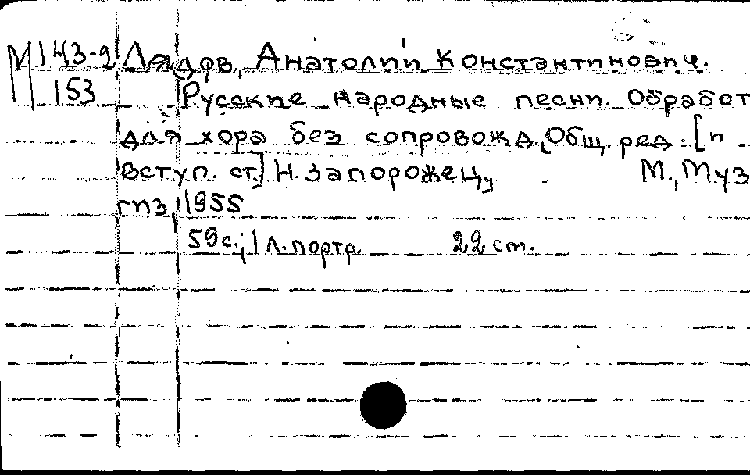 М 143-2 Лядов, Анатолий Константинович.
153 Русские народные песни. Обработ
для хора без сопровожд. Общ. ред. [и
вступ. ст.] Н. Запорожец,
М., Муз
гиз, 1955
59 с., 1 л. портр. 22 см.